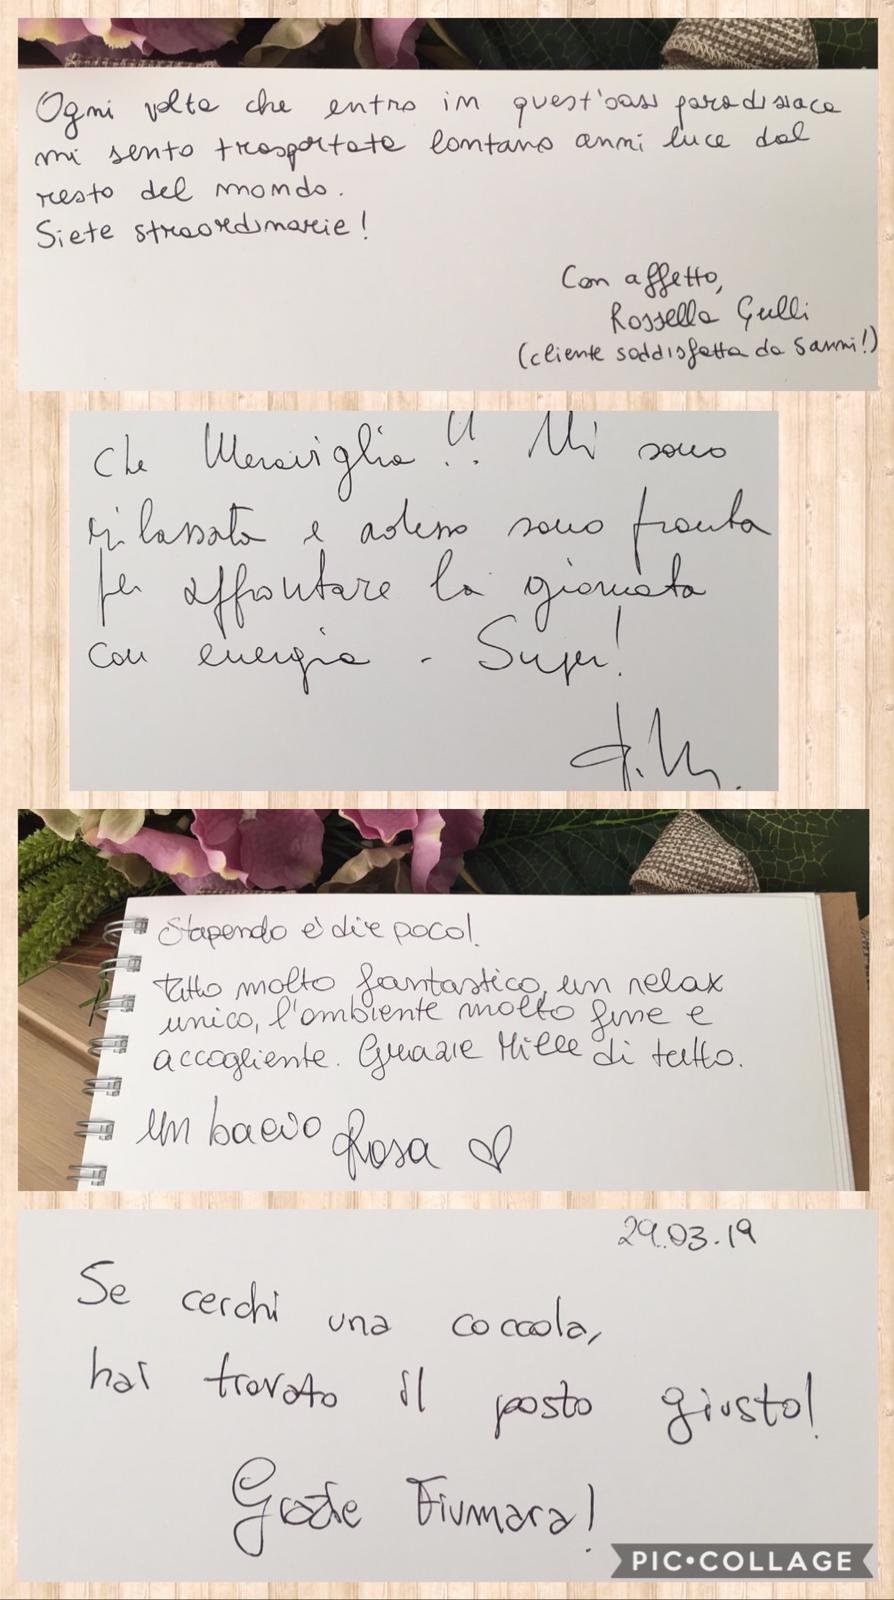 Ogni volta che entro in quest'oasi paradisiaca
mi sento trasportata lontano anni luce dal
resto del mondo.
Siete straordinarie!
Con affetto,
Rossella Gulli
(cliente soddisfatta da 5anni!)
Che Meraviglia!! Mi sono
rilassata e adesso sono pronta
per affrontare la giornata
con energia - Super!
Stupendo è dire poco!
Tutto molto fantastico, un relax
unico, l'ambiente molto fine e
accogliente. Grazie Mille di tutto.
Un bacio Rosa ♡
29.03.19
Se cerchi una coccola,
hai trovato il posto giusto!
Grazie Fiumara!
PIC•COLLAGE